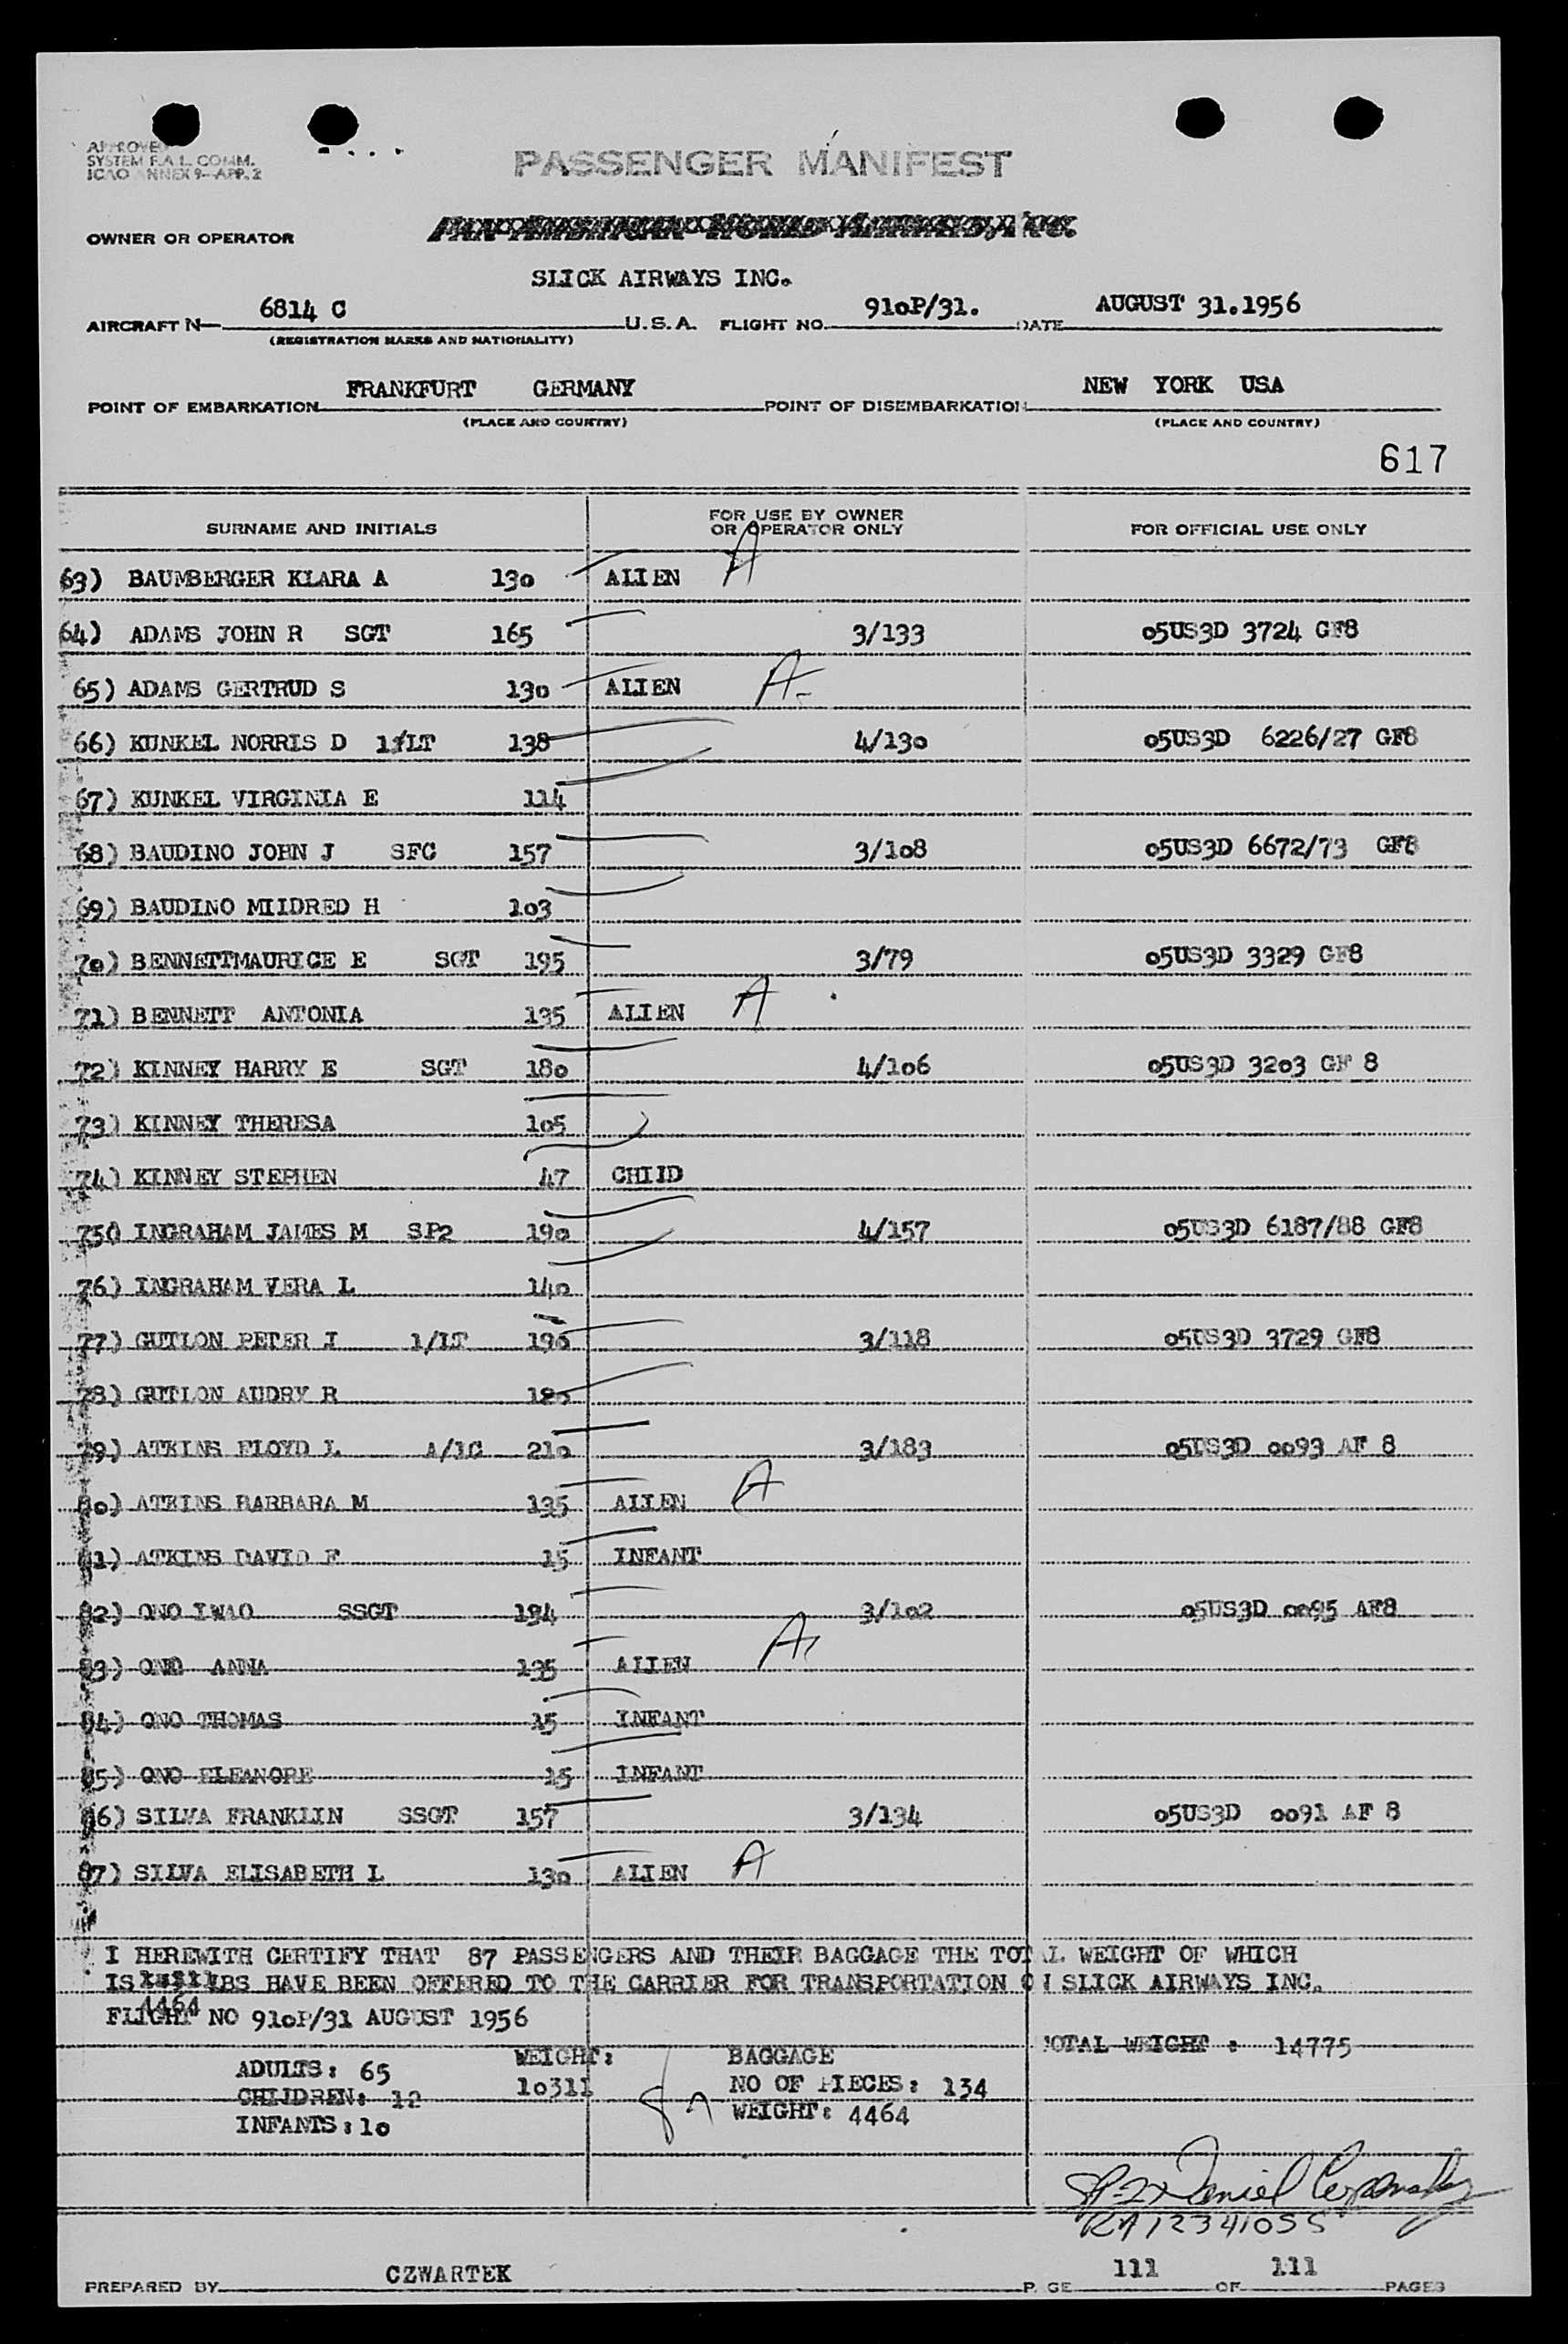 APPROVED
SYSTEM F.A.L. COMM.
ICAO ANNEX 9-APP. 2
PASSENGER MANIFEST
OWNER OR OPERATOR
SLICK AIRWAYS INC.
AIRCRAFT N- 6814 C U.S.A. FLIGHT NO. 91oP/31. DATE AUGUST 31.1956
(REGISTRATION MARKS AND NATIONALITY)
POINT OF EMBARKATION FRANKFURT GERMANY POINT OF DISEMBARKATION NEW YORK USA
(PLACE AND COUNTRY) (PLACE AND COUNTRY)
617
SURNAME AND INITIALS FOR USE BY OWNER OR OPERATOR ONLY FOR OFFICIAL USE ONLY
63) BAUMBERGER KLARA A 13o ALIEN A
64) ADAMS JOHN R SGT 165 3/133 o5US3D 3724 GF8
65) ADAMS GERTRUD S 13o ALIEN A
66) KUNKEL NORRIS D 1/LT 138 4/13o o5US3D 6226/27 GF8
67) KUNKEL VIRGINIA E 114
68) BAUDINO JOHN J SFC 157 3/1o8 o5US3D 6672/73 GF8
69) BAUDINO MIIDRED H 1o3
7o) BENNETTMAURICE E SGT 195 3/79 o5US3D 3329 GF8
71) BENNETT ANTONIA 135 ALIEN A
72) KINNEY HARRY E SGT 18o 4/1o6 o5US3D 32o3 GF 8
73) KINNEY THERESA 1o5
74) KINNEY STEPHEN 47 CHIID
75( INGRAHAM JAMES M SP2 19o 4/157 o5US3D 6187/88 GF8
76) INGRAHAM VERA L 14o
77) GUTLON PETER J 1/LT 19o 3/118 o5US3D 3729 GF8
78) GUTLON AUDRY R
79) ATKINS FLOYD L A/1C 21o 3/183 o5US3D oo93 AF 8
8o) ATKINS BARBARA M 135 ALIEN A
81) ATKINS DAVID F 15 INFANT
82) ONO IWAO SSGT 194 3/1o2 o5US3D oo95 AF8
83) ONO ANNA 135 ALIEN A
84) ONO THOMAS 15 INFANT
85) ONO ELEANORE 15 INFANT
86) SILVA FRANKLIN SSGT 157 3/134 o5US3D oo91 AF 8
87) SILVA ELISABETH L 13o ALIEN A
I HEREWITH CERTIFY THAT 87 PASSENGERS AND THEIR BAGGAGE THE TOTAL WEIGHT OF WHICH
IS LBS HAVE BEEN OFFERED TO THE CARRIER FOR TRANSPORTATION ON SLICK AIRWAYS INC.
4464
FLIGHT NO 91oP/31 AUGUST 1956
TOTAL WEIGHT : 14775
ADULTS: 65 WEIGHT: BAGGAGE
CHILDREN: 12 1o311 NO OF PIECES: 134
INFANTS: 1o WEIGHT: 4464
SP-2 Daniel
RA12341055
PREPARED BY CZWARTEK PAGE 111 OF 111 PAGES